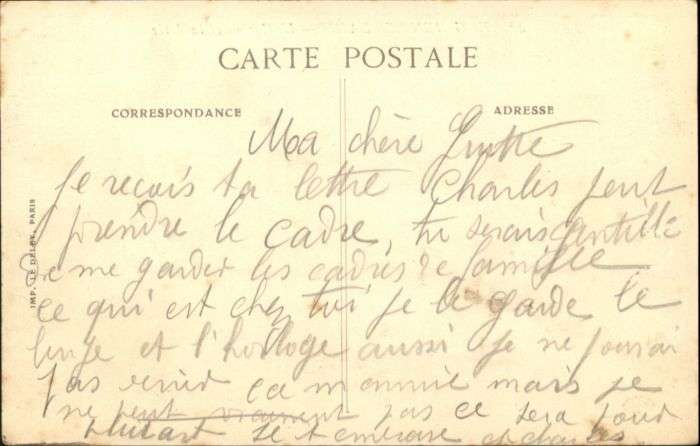 CARTE POSTALE
CORRESPONDANCE
ADRESSE
IMP. LE DELEY, PARIS
Ma chère
Je reçois ta lettre Charles peut
prendre le cadre, tu serais gentille
de me garder les cadres de famille
ce qui est chez toi je le garde le
linge et l'horloge aussi je ne pourrai
pas venir ça m'ennuie mais je
ne peut vraiment pas ce sera pour
plus tard je t'embrasse